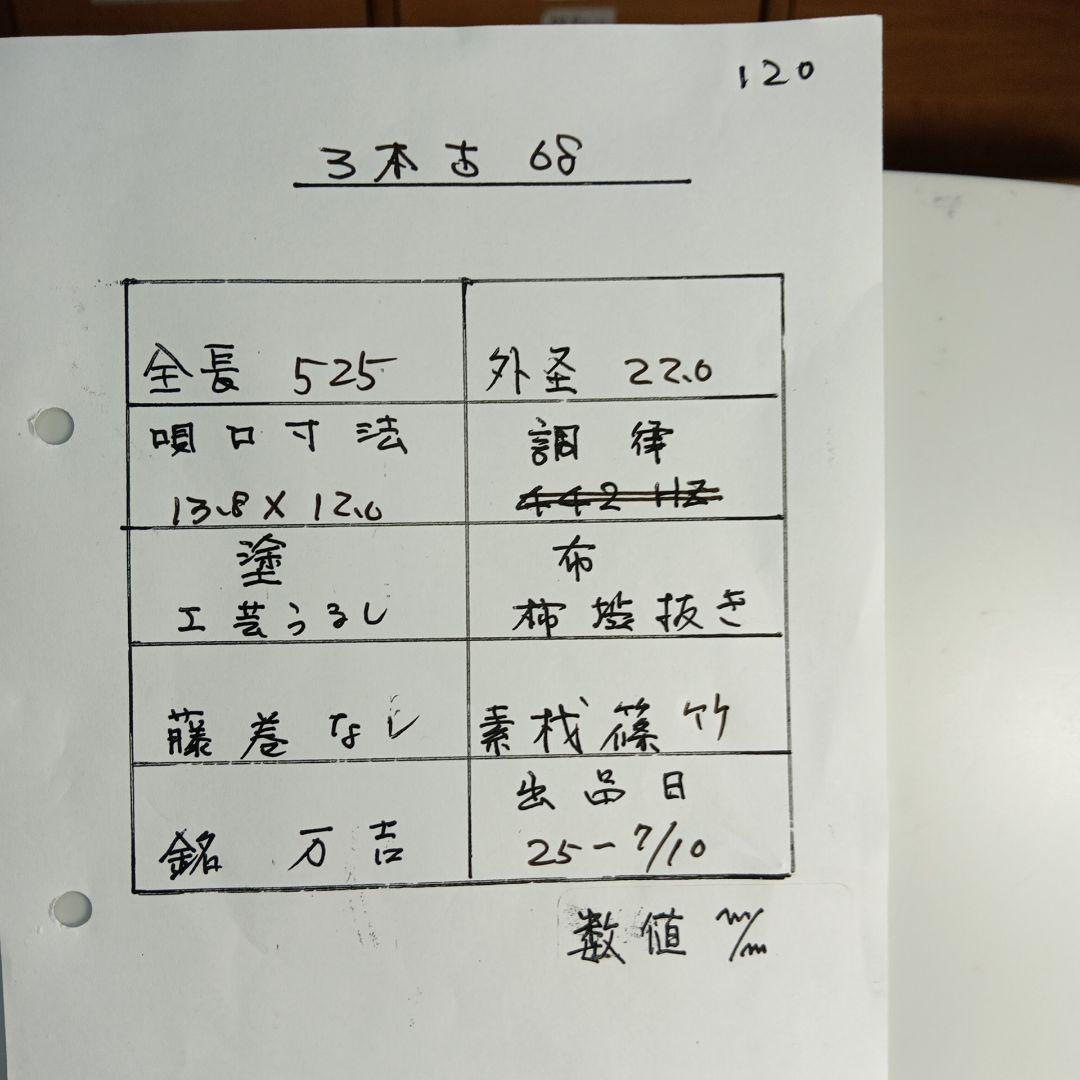 120
3本古 68
全長 525
外圣 22.0
唄口寸法
13.8×12.0
調律
442HZ
塗
工芸うるし
布
柿渋抜き
藤巻なし
素材篠竹
銘 万吉
出品日
25-7/10
数値 m/m